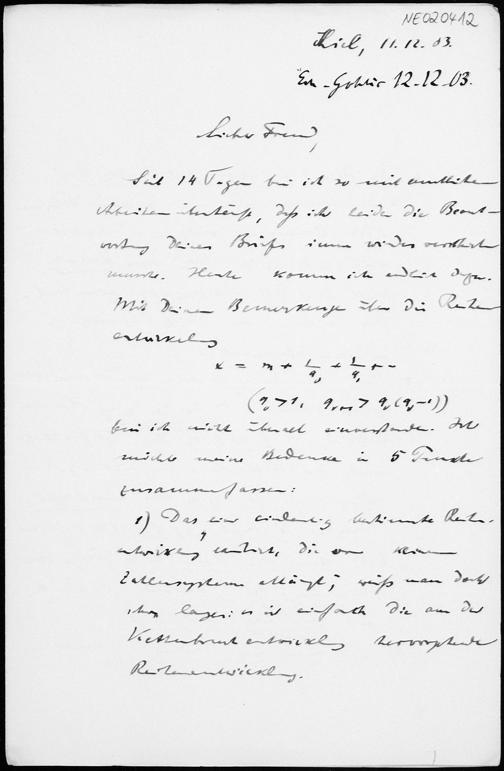 NE020412
Kiel, 11.12.03.
12-12-03.
Lieber Freund,
Seit 14 Tagen bin ich so mit amtlichen
Arbeiten überhäuft, daß ich leider die Beant-
wortung Deines Briefes immer wieder verschieben
musste. Heute komme ich endlich dazu.
Mit Deinen Bemerkungen über die Reihen-
entwickelung
x = m + 1/q₁ + 1/q₂ + --
bin ich nicht überall einverstanden. Ich
möchte meine Bedenken in 5 Punkte
zusammenfassen:
1) Das eine eindeutig bestimmte Reihen-
entwickelung existirt, die von keinem
Zahlensysteme abhängt, weiß man doch
schon lange: es ist einfach die aus der
Kettenbruchentwickelung hervorgehende
Reihenentwickelung.